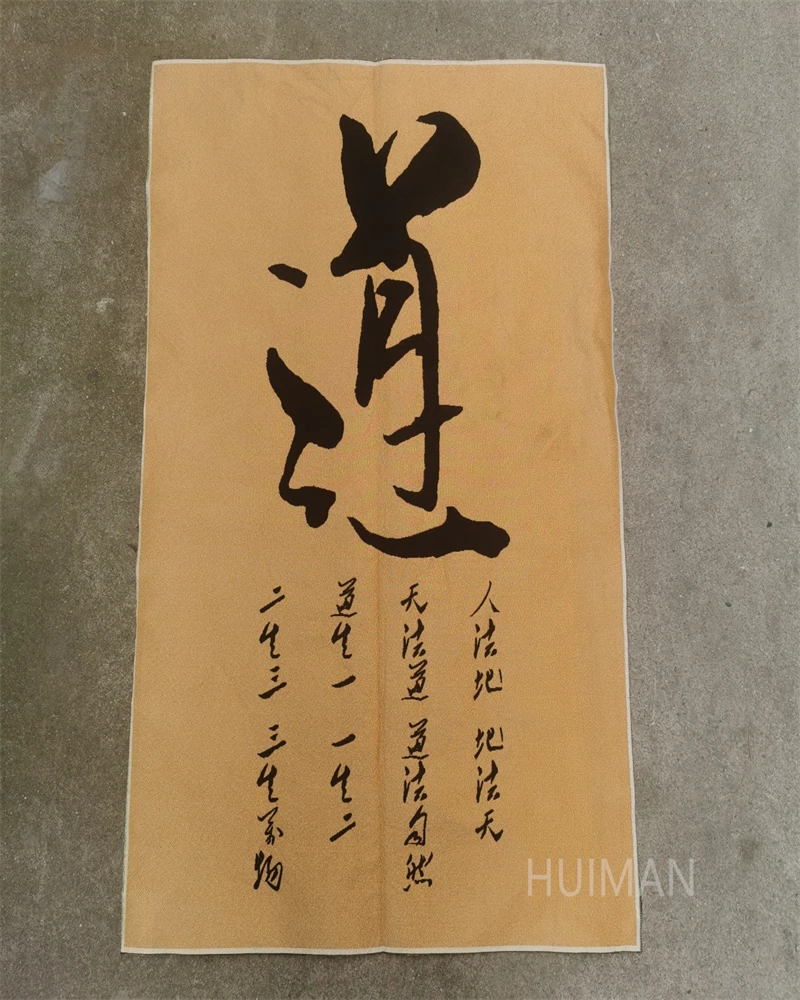 道
人法地 地法天
天法道 道法自然
道生一 一生二
二生三 三生萬物
HUIMAN